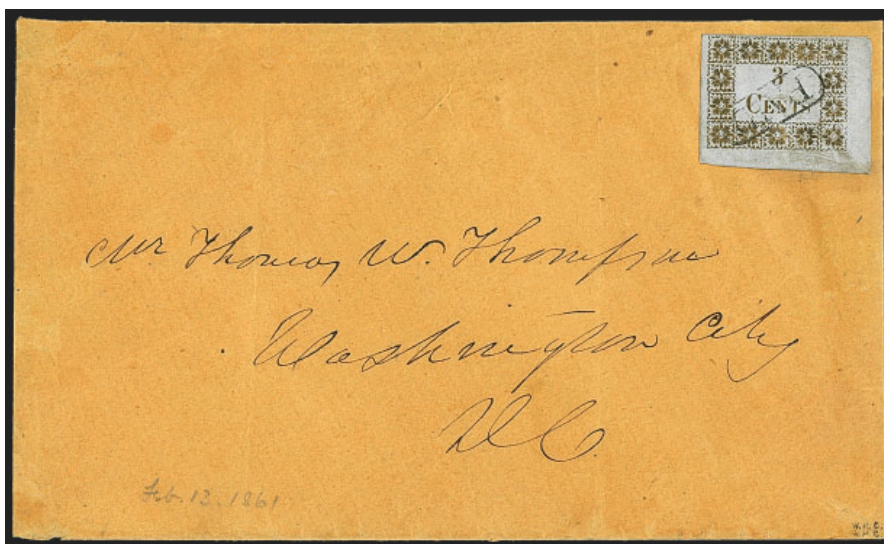 3
CENTS
Mr Thomas W. Thompson
Washington City
D C
Feb. 13. 1861